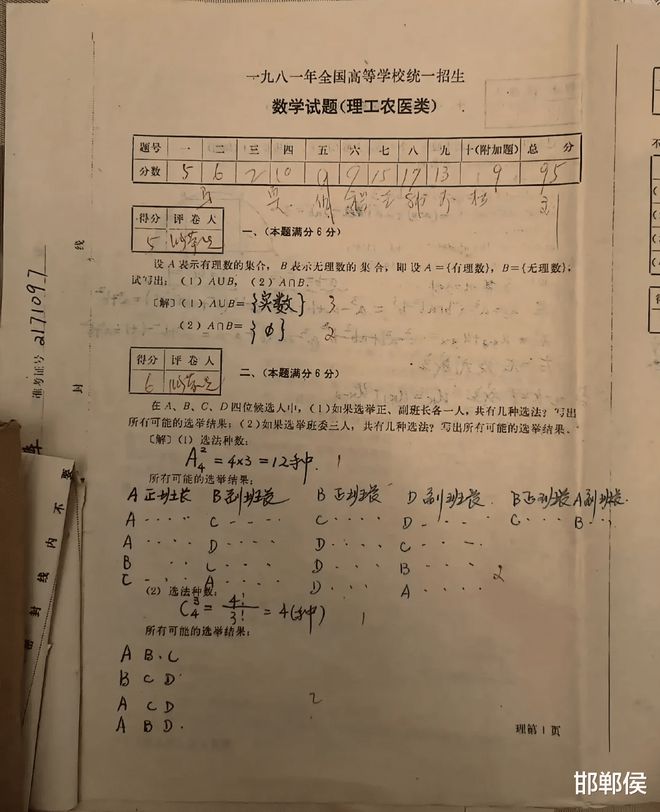 一九八一年全国高等学校统一招生
数学试题(理工农医类)
题号 一 二 三 四 五 六 七 八 九 十(附加题) 总 分
分数 5 6 2 10 9 7 15 17 13 9 95
得分 评卷人
5
一、(本题满分6分)
设A表示有理数的集合，B表示无理数的集合，即设A={有理数}，B={无理数}，
试写出：(1) A∪B, (2) A∩B.
〔解〕(1) A∪B= {实数} 3
(2) A∩B= {φ} 2
得分 评卷人
6
二、(本题满分6分)
在A、B、C、D四位候选人中，(1)如果选举正、副班长各一人，共有几种选法？写出
所有可能的选举结果；(2)如果选举班委三人，共有几种选法？写出所有可能的选举结果。
〔解〕(1) 选法种数：
A₄² = 4×3 = 12种. 1
所有可能的选举结果：
A 正班长 B 副班长 B 正班长 D 副班长 B正班长 A副班长.
A .... C .... C .... D .... C... B...
A .... D .... D .... C ....
B .... C .... D .... B ....
C .... A .... D .... A .... 2
(2) 选法种数：
C₄³ = 4!/3! = 4(种) 1
所有可能的选举结果：
A B. C
B C D
A C D 2
A B D.
理第1页
准考证号 2171097
封 线
密封线内不要
邯郸侯